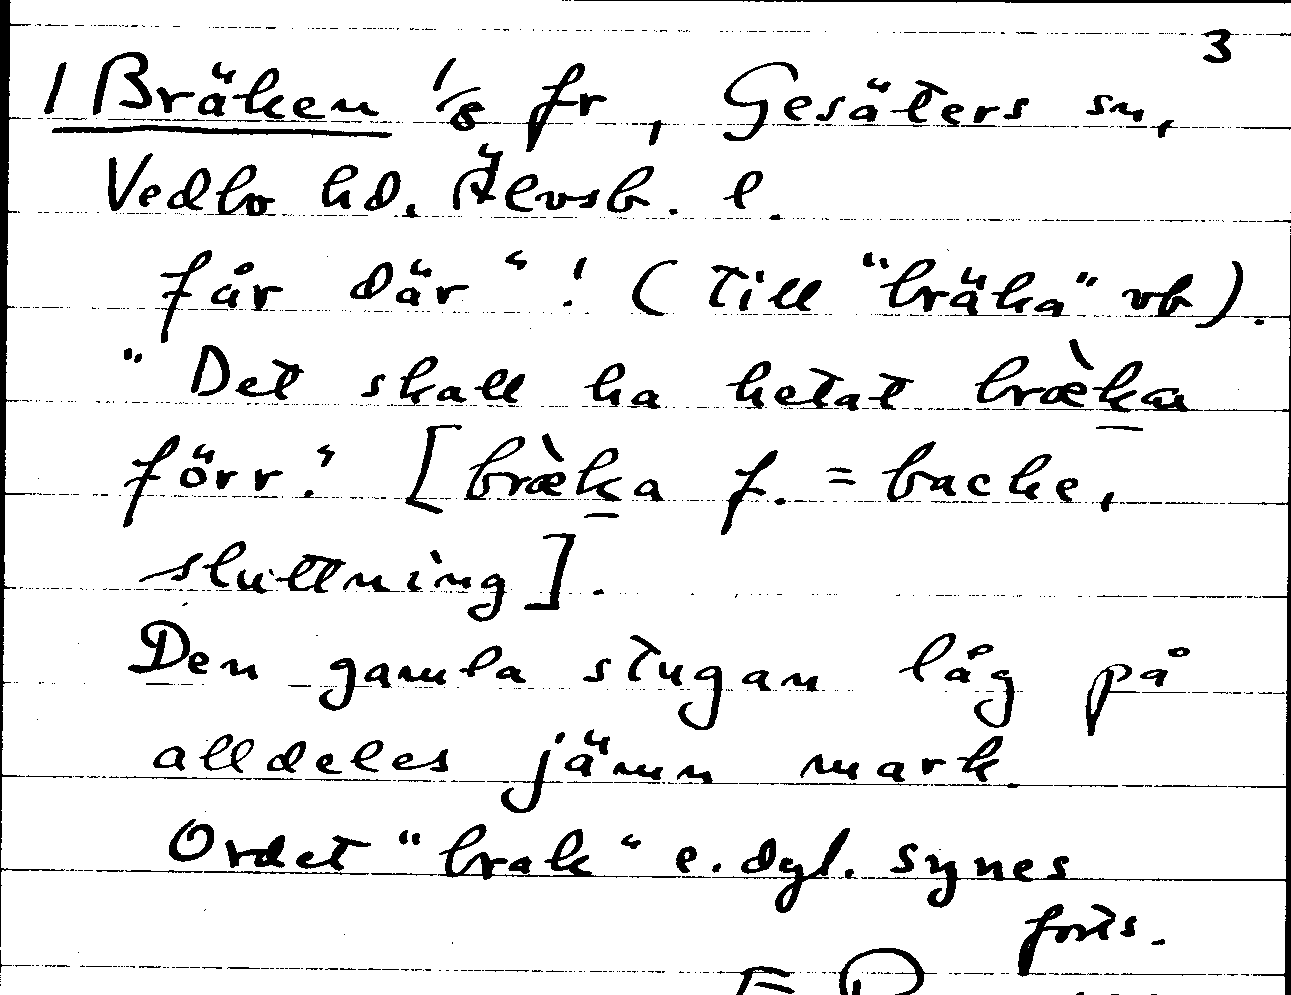 3
1 Bräken 1/8 fr, Gesäters sn,
Vedbo hd. Älvsb. l.
får där"! (Till "bräka" vb).
"Det skall ha hetat bræ̀ka
förr." [bræ̀ka f. = backe,
sluttning].
Den gamla stugan låg på
alldeles jämn mark.
Ordet "brak" e. dyl. synes
forts.